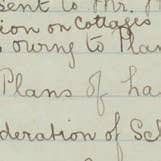 sent to Mr.
ion on Cottages
s owing to Plan
Plans of ha
deration of Sch